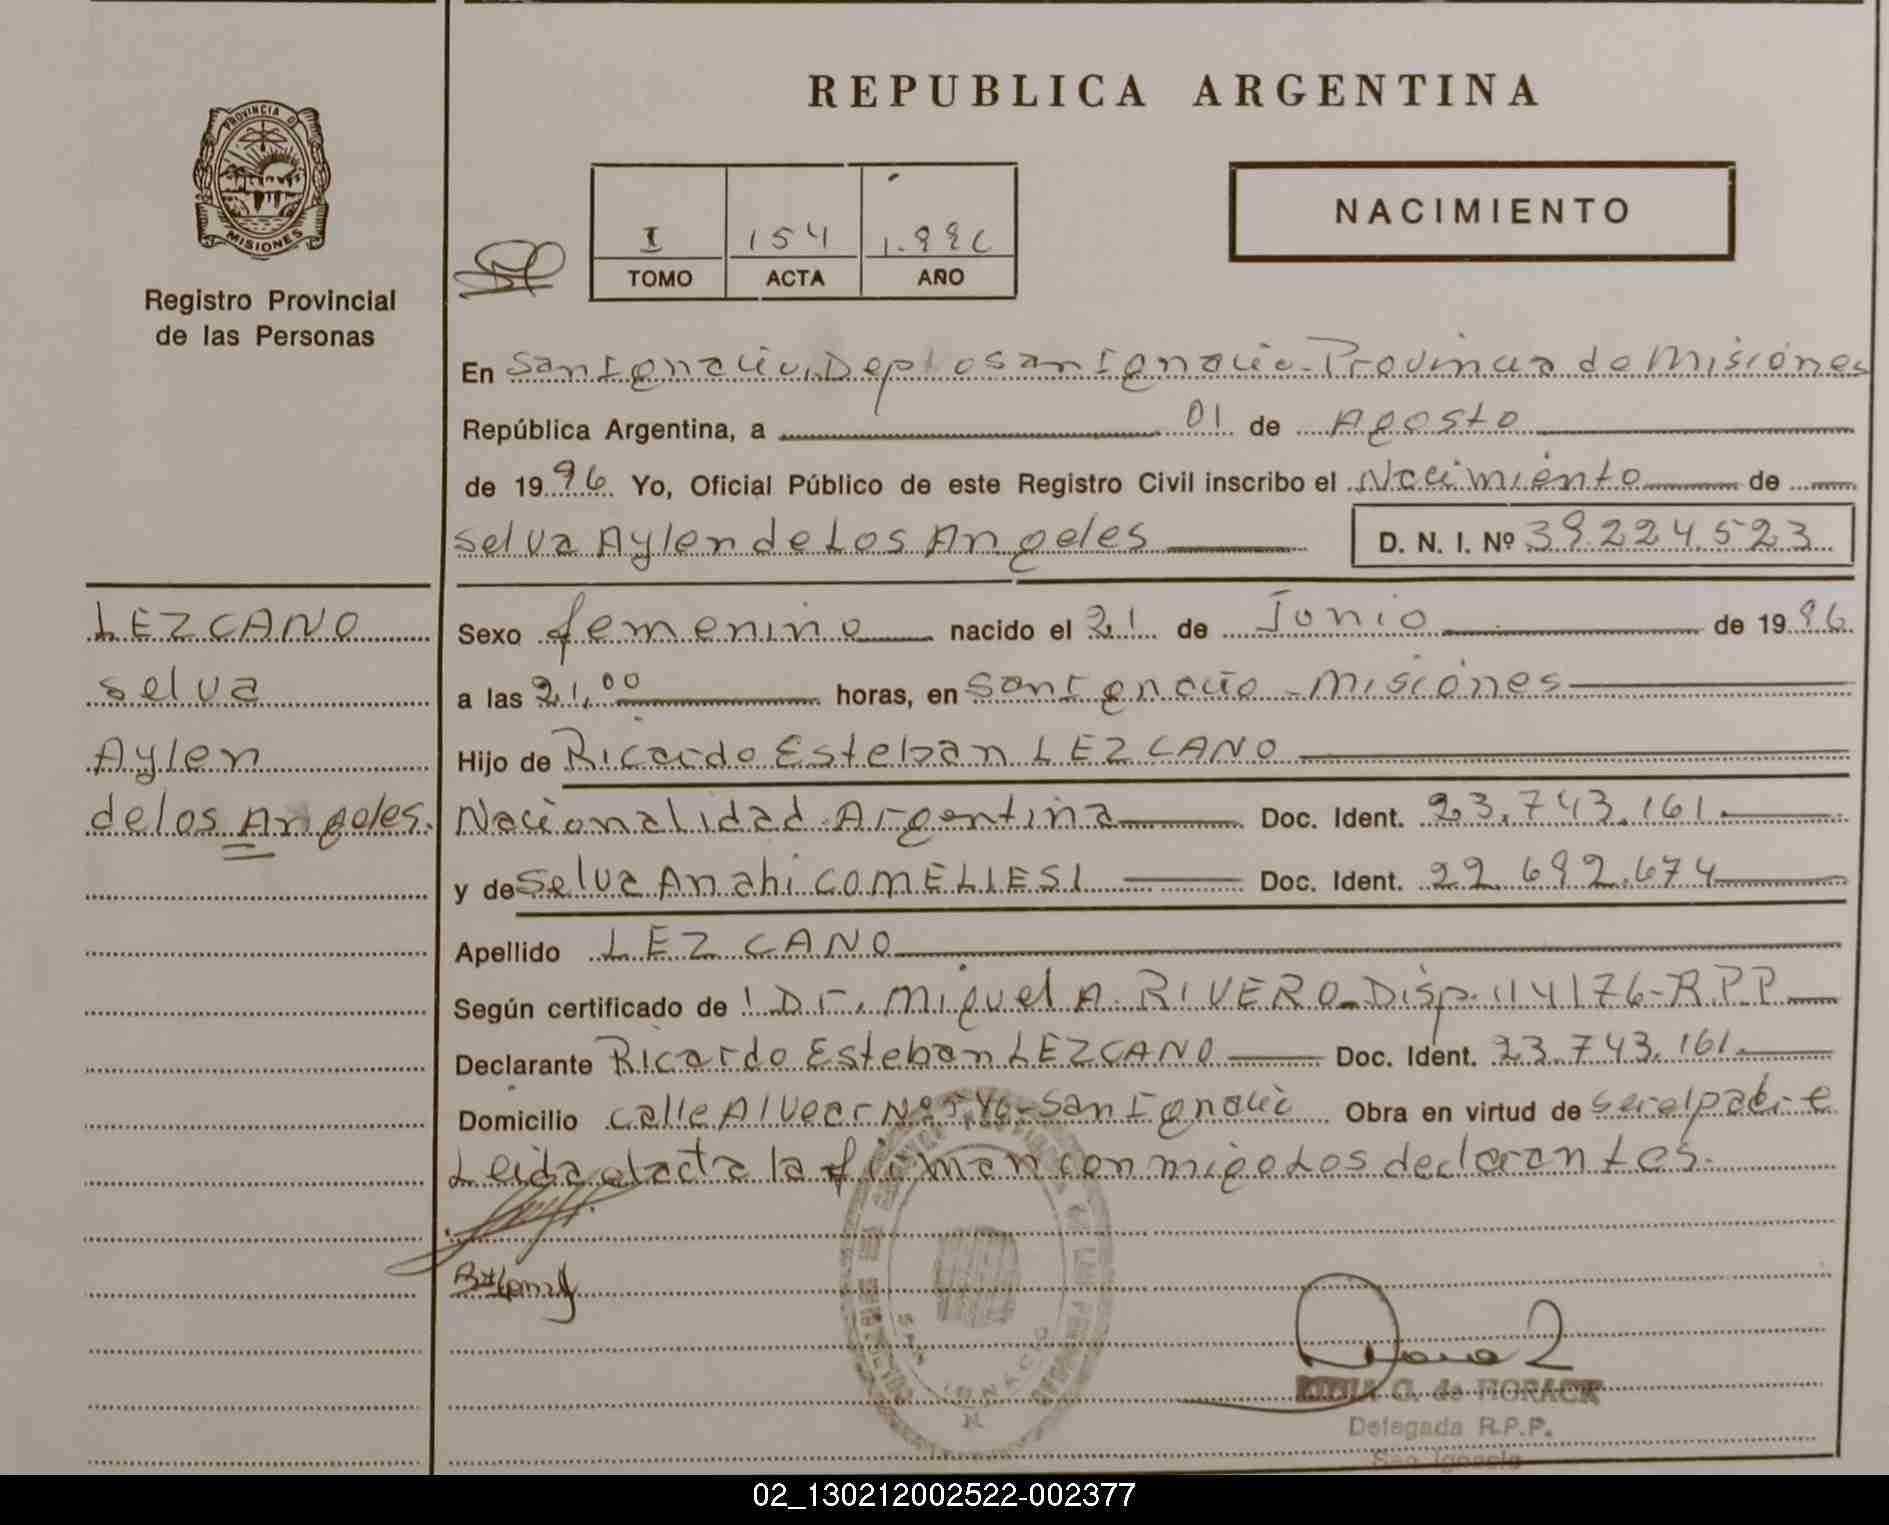 REPUBLICA ARGENTINA
PROVINCIA DE
MISIONES
Registro Provincial
de las Personas
I 154 1.996
TOMO ACTA AÑO
NACIMIENTO
En San Ignacio, Depto San Ignacio - Provincia de Misiones
República Argentina, a 01 de Agosto
de 1996 Yo, Oficial Público de este Registro Civil inscribo el Nacimiento de
Selva Aylen de Los Angeles D. N. I. Nº 39.224.523
LEZCANO
Selva
Aylen
de los Angeles.
Sexo femenino nacido el 21 de Junio de 1996
a las 21,00 horas, en San Ignacio - Misiones
Hijo de Ricardo Esteban LEZCANO
Nacionalidad Argentina Doc. Ident. 23.743.161
y de Selva Anahi COMELLESI Doc. Ident. 22.692.674
Apellido LEZCANO
Según certificado de Dr. Miguel A. RIVERO - Disp. 114/76 - RPP
Declarante Ricardo Esteban LEZCANO Doc. Ident. 23.743.161
Domicilio Calle Alvear Nº San Ignacio Obra en virtud de ser el padre
Leida el acta la firman conmigo Los declarantes.
G. de HORACK
Delegada R.P.P.
San Ignacio
02_130212002522-002377